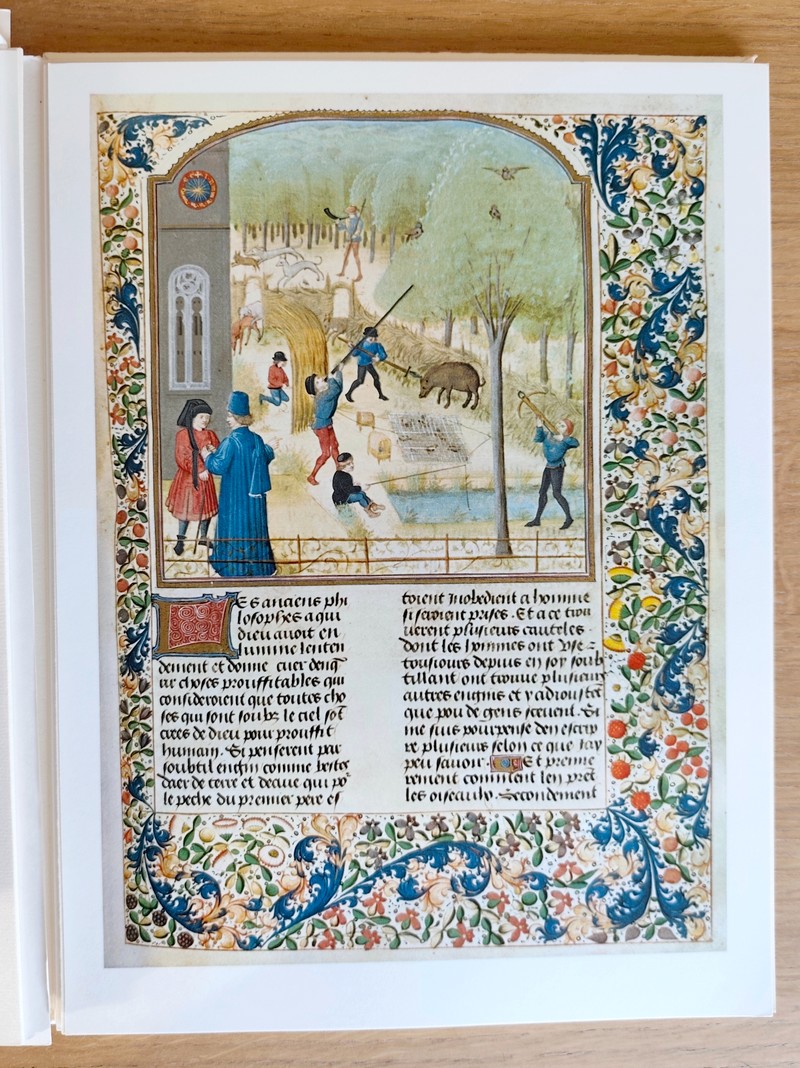 Es anciens phi
losophes a qui
dieu avoit en
lumine lenten
dement et donne cuer denq̄
rir choses prouffitables qui
consideroient que toutes cho
ses qui sont soubz le ciel sōt
crees de dieu pour prouffit
humain. Si penserent par
soubtil engin comme bestes
daer de terre et deaue qui poʳ
le peche du premier pere es
toient Inobedient a homme
si seroient prises. Et a ce trou
verent plusieurs cauteles
dont les hommes ont vse
tousiours depuis en soy soub
tillant ont trouve plusieurs
autres engins et y adiouster
que pou de gens scevent. Si
me suis pourpense den escrip
re plusieurs selon ce que jay
peu savoir. Et premie
rement comment len prēt
les oiseaulx. Secondement